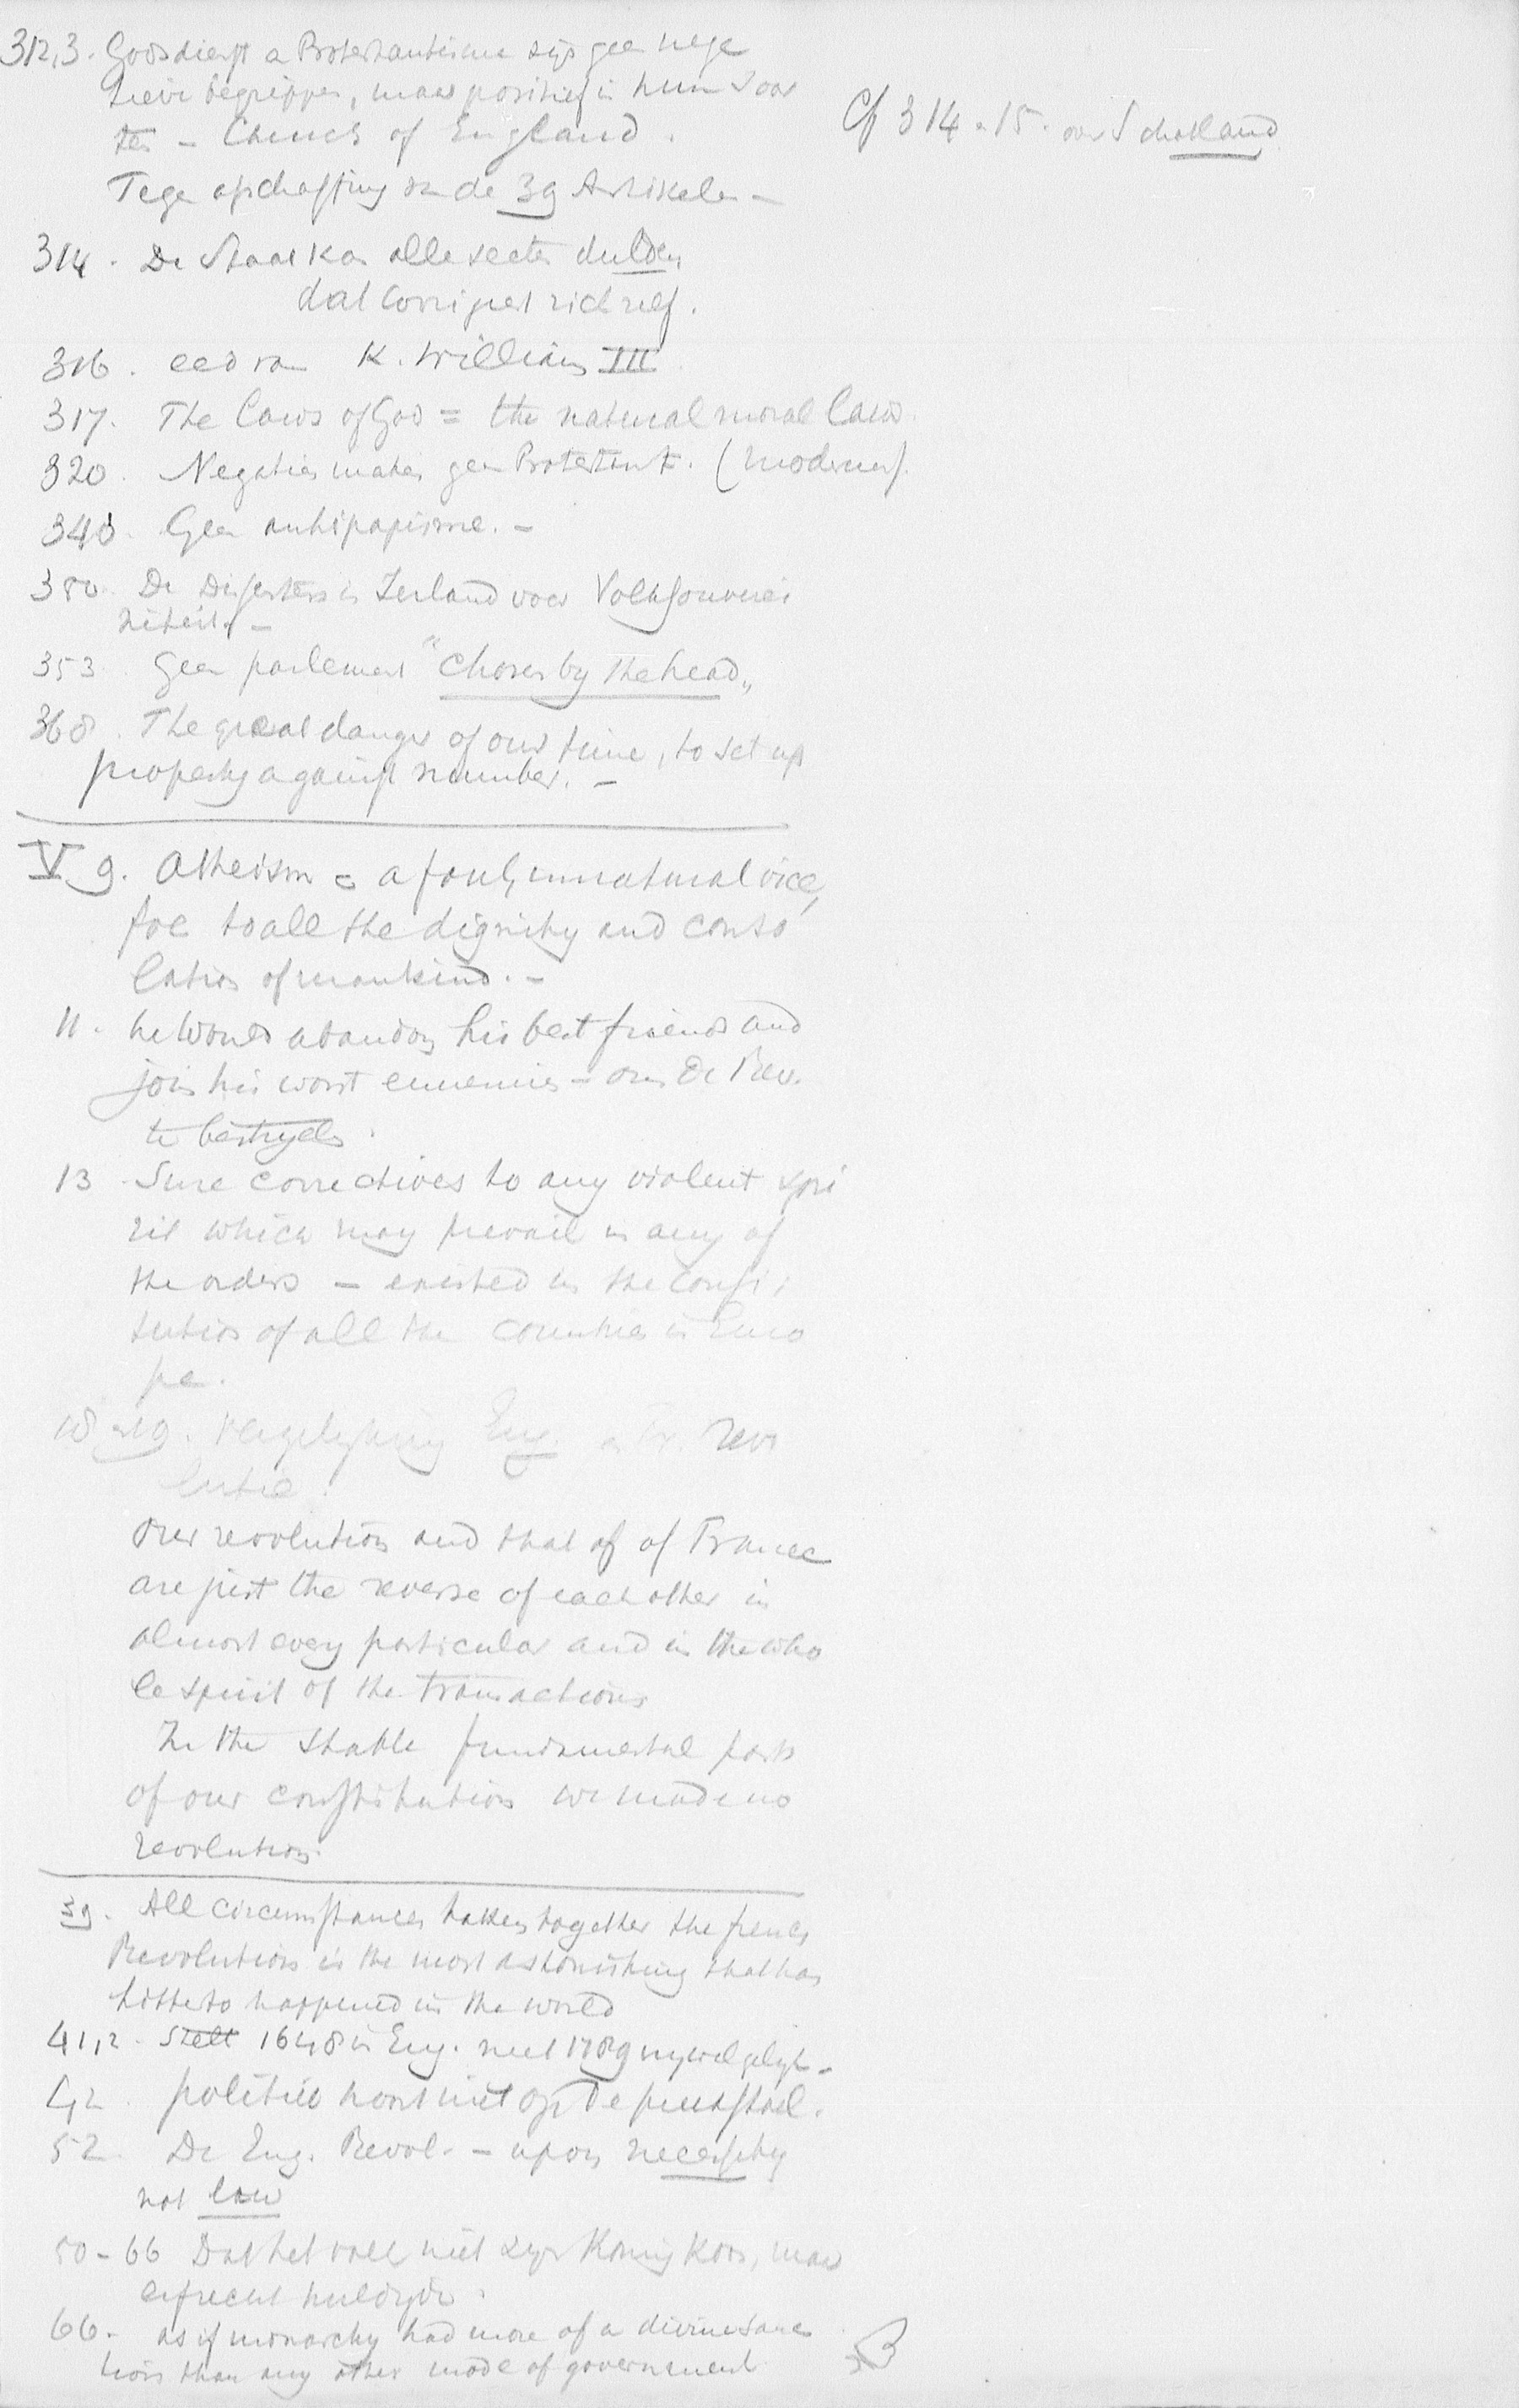 312,3. Godsdienst a Protestantisme zijn geen nega
tieve begrippen, maar positief in hun soor
ten - Church of England.
Cf 314 a 15. over Schotland
Tegen afschaffing van de 39 Artikelen -
314. De Staat kan alle secten dulden
dat corrigeert zich zelf.
316. eed van K. William III
317. The laws of God = the natural moral laws.
320. Negatie maken geen Protestant. (modernen).
340. Geen antipapisme. -
350. De Dissenters in Ierland voor Volkssouverei
niteit. -
353. Geen parlement "chosen by the head„
368. The great danger of our time, to set up
property against number. -
V 9. Atheism = a foul, unnatural vice,
foe to all the dignity and conso
lation of mankind. -
11. he would abandon his best friends and
join his worst ennemies - om De Rev.
te bestryden.
13 Sure correctives to any violent spi
rit which may prevail in any of
the orders - existed in the consti
tution of all the countries in Euro
pe.
18-19. Vergelijking Eng. en Fr. revo
lutie.
Our revolution and that of of France
are just the reverse of each other in
almost every particular and in the who
le spirit of the transactions
In the stable fundamental parts
of our constitution we made no
revolution.
39. All circumstances taken together the french
Revolution is the most astonishing that has
hitherto happened in the world
41,2. Stelt 1648 in Eng. met 1789 vrywel gelyk -
42. politiek hoort niet op De preekstoel.
52. De Eng. Revol. - upon necessity
not law
50-66 Dat het volk niet zyn Koning koos, maar
erfrecht huldigde.
66. as if monarchy had more of a divine sanc
tion than any other mode of government